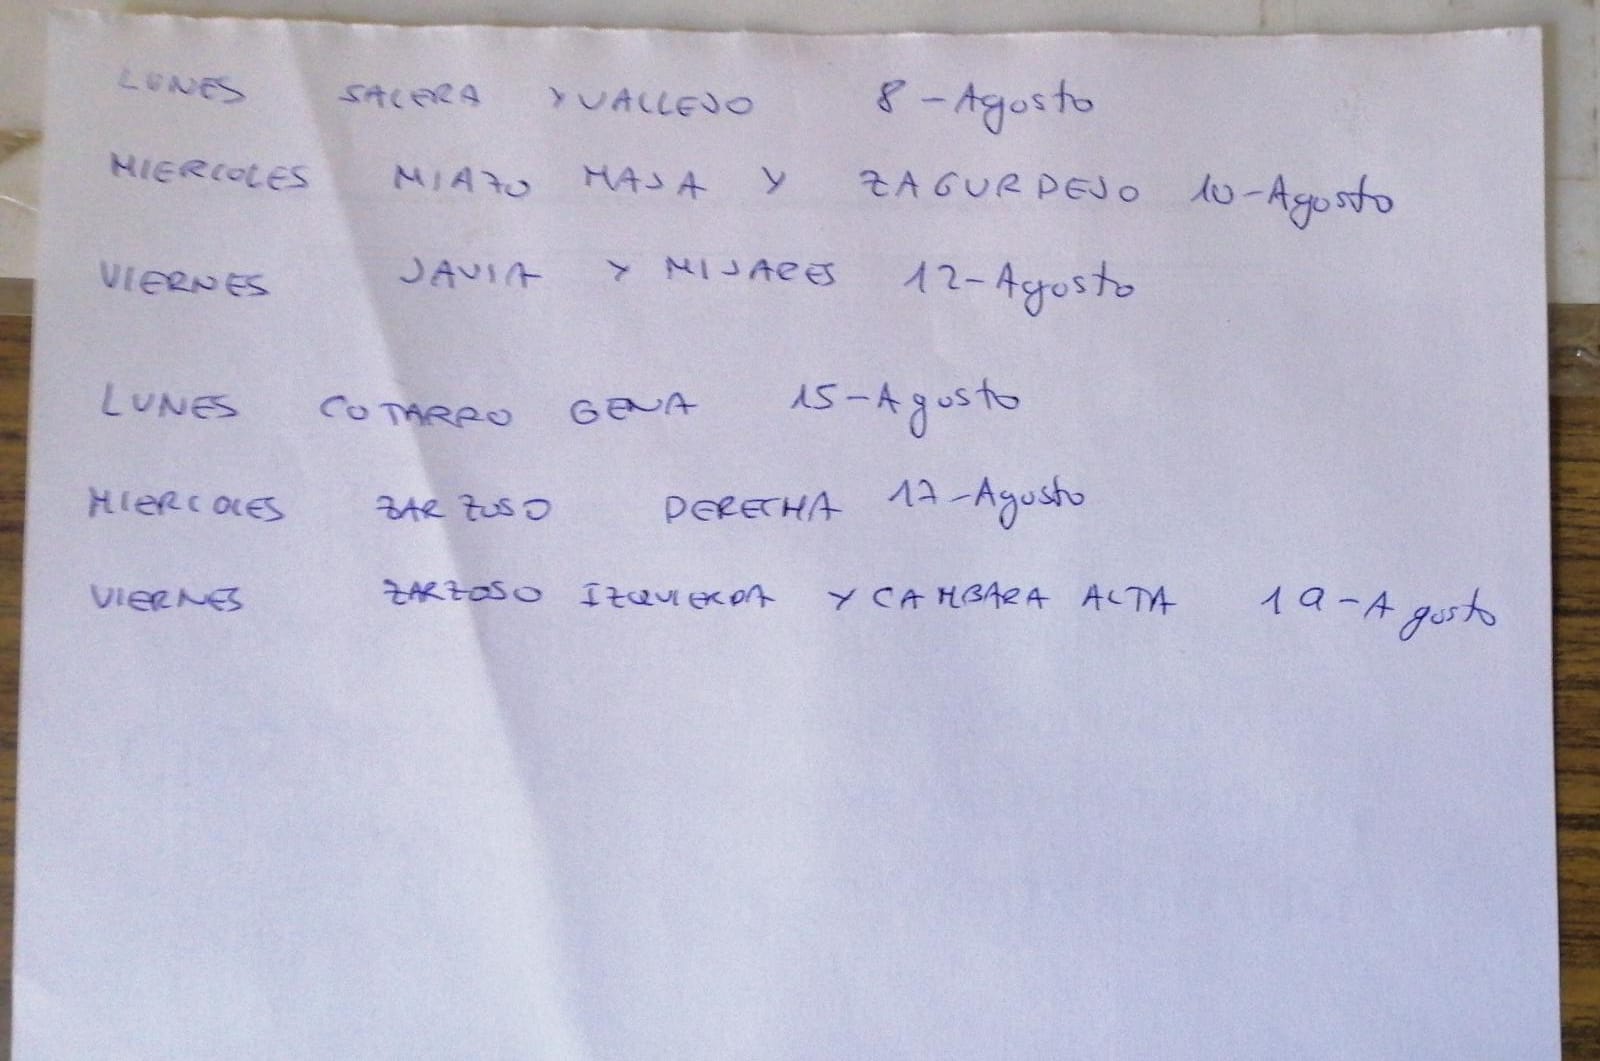 LUNES SALERA Y VALLEJO 8-Agosto
MIERCOLES MIAZO MAJA Y ZAGURDEJO 10-Agosto
VIERNES JAVIA Y MIJARES 12-Agosto
LUNES COTARRO GENA 15-Agosto
MIERCOLES ZARZOSO DERECHA 17-Agosto
VIERNES ZARZOSO IZQUIERDA Y CAMBARA ALTA 19-Agosto